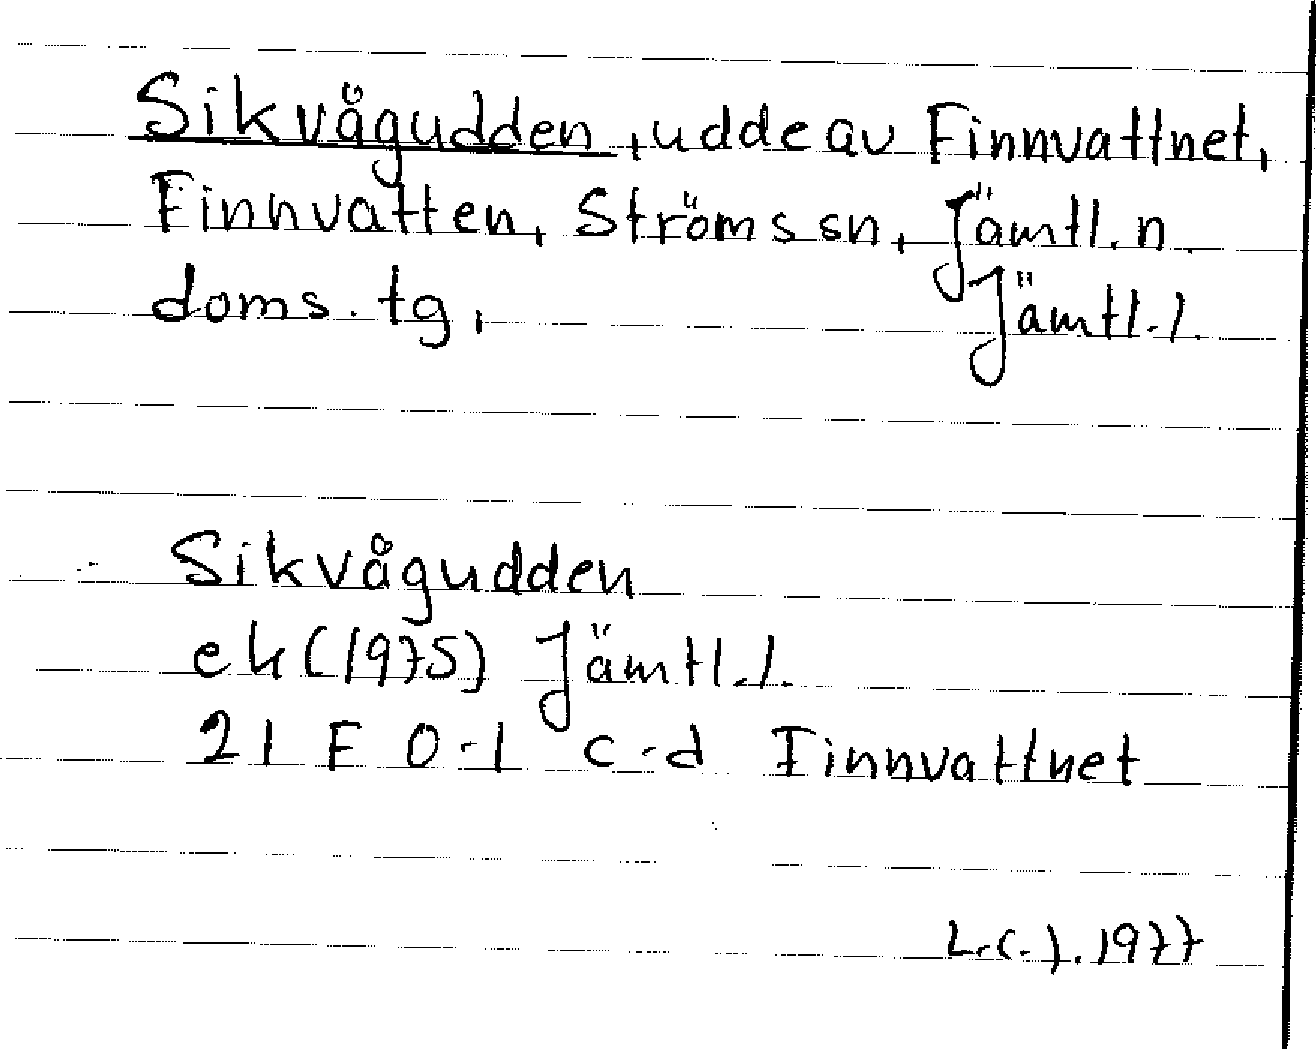 Sikvågudden, udde av Finnvattnet,
Finnvatten, Ströms sn, Jämtl. n.
doms. tg, Jämtl. l.
Sikvågudden
ek (1975) Jämtl. l.
21 E 0-1 c-d Finnvattnet
L.C.J. 1977